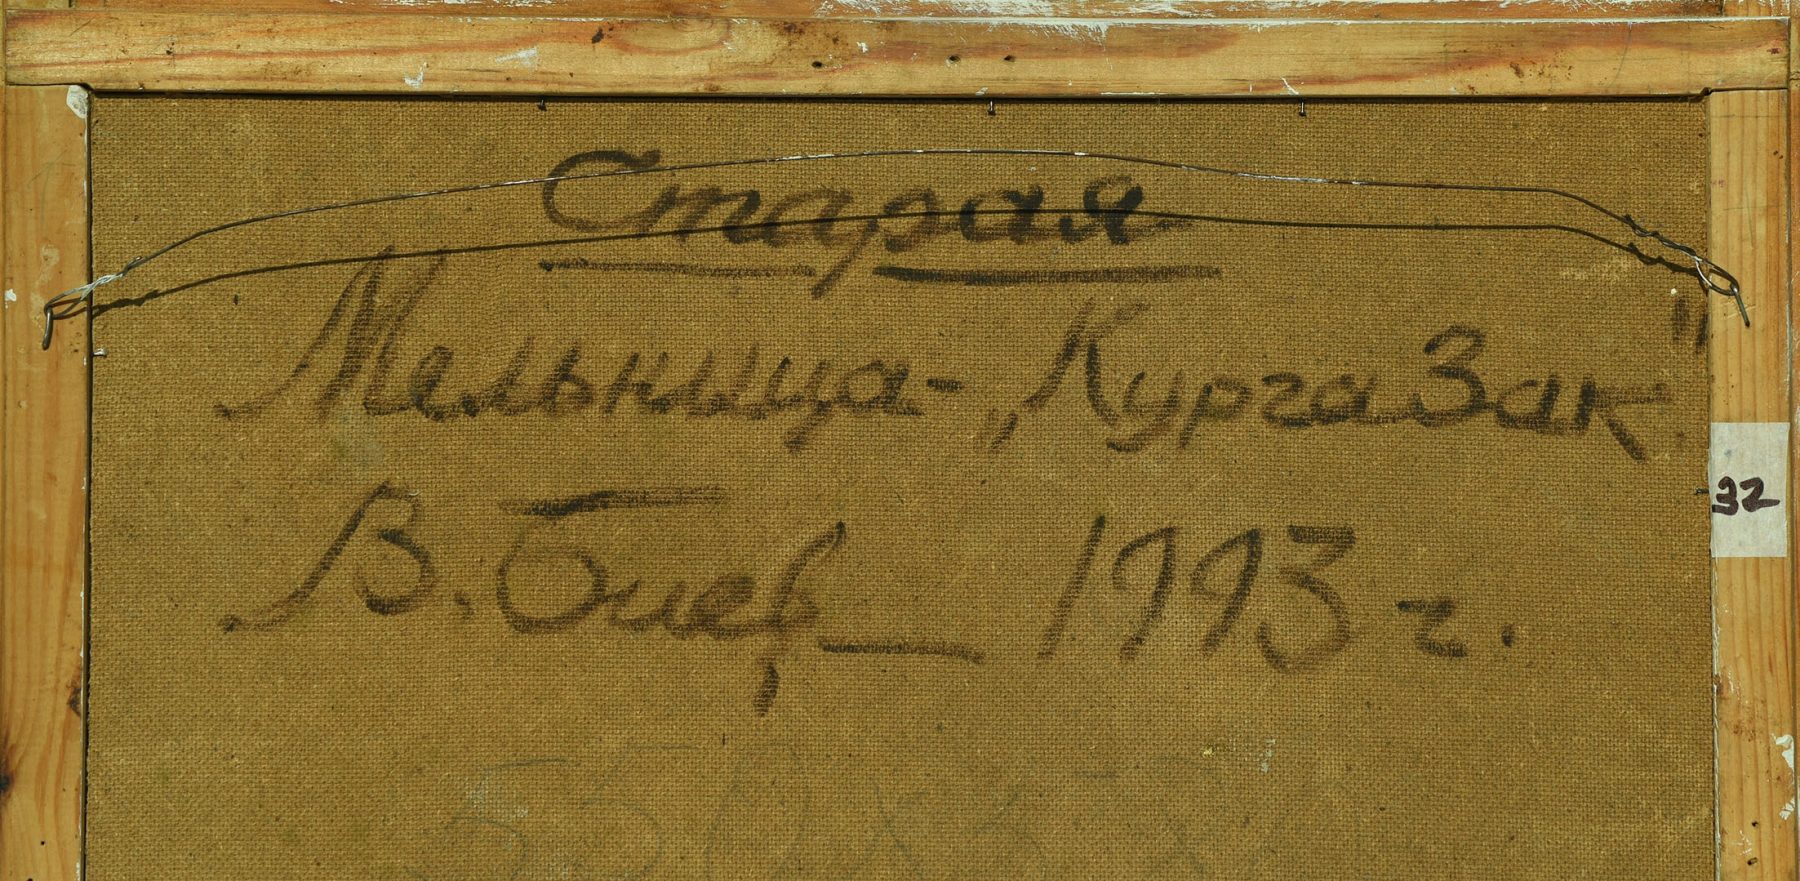 Старая
Мельница- „Кургазак"
В. 1993 г.
32